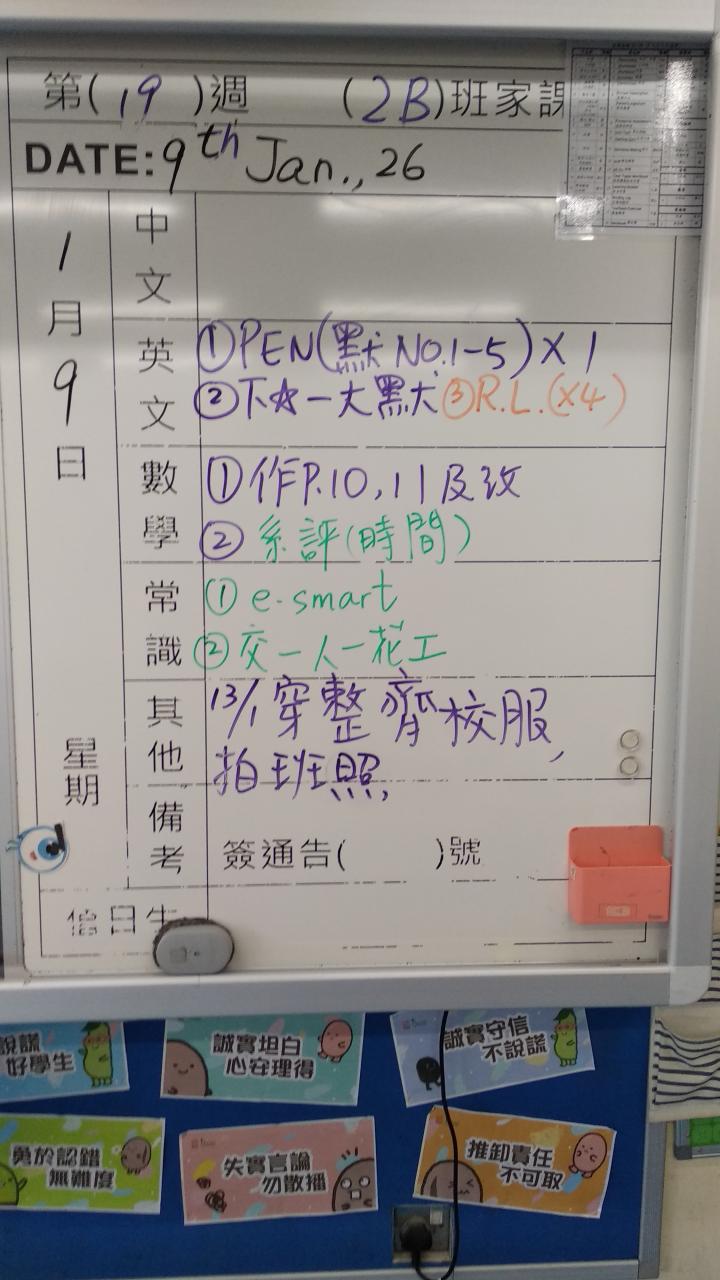 第(19)週 (2B)班家課
DATE: 9th Jan., 26
1月9日
星期
中文
英文
①PEN(默NO.1-5)×1
②下☆一大默 ③R.L.(×4)
數學
①作P.10,11及改
②系評(時間)
常識
①e-smart
②交一人一花工
其他
13/1穿整齊校服,
拍班照,
備考
簽通告( )號
值日生
說謊
好學生
誠實坦白
心安理得
誠實守信
不說謊
勇於認錯
無難度
失實言論
勿散播
推卸責任
不可取